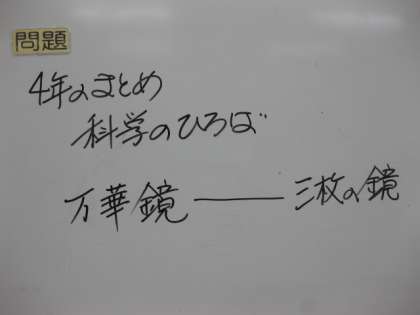 問題
4年のまとめ
科学のひろば
万華鏡――三枚の鏡